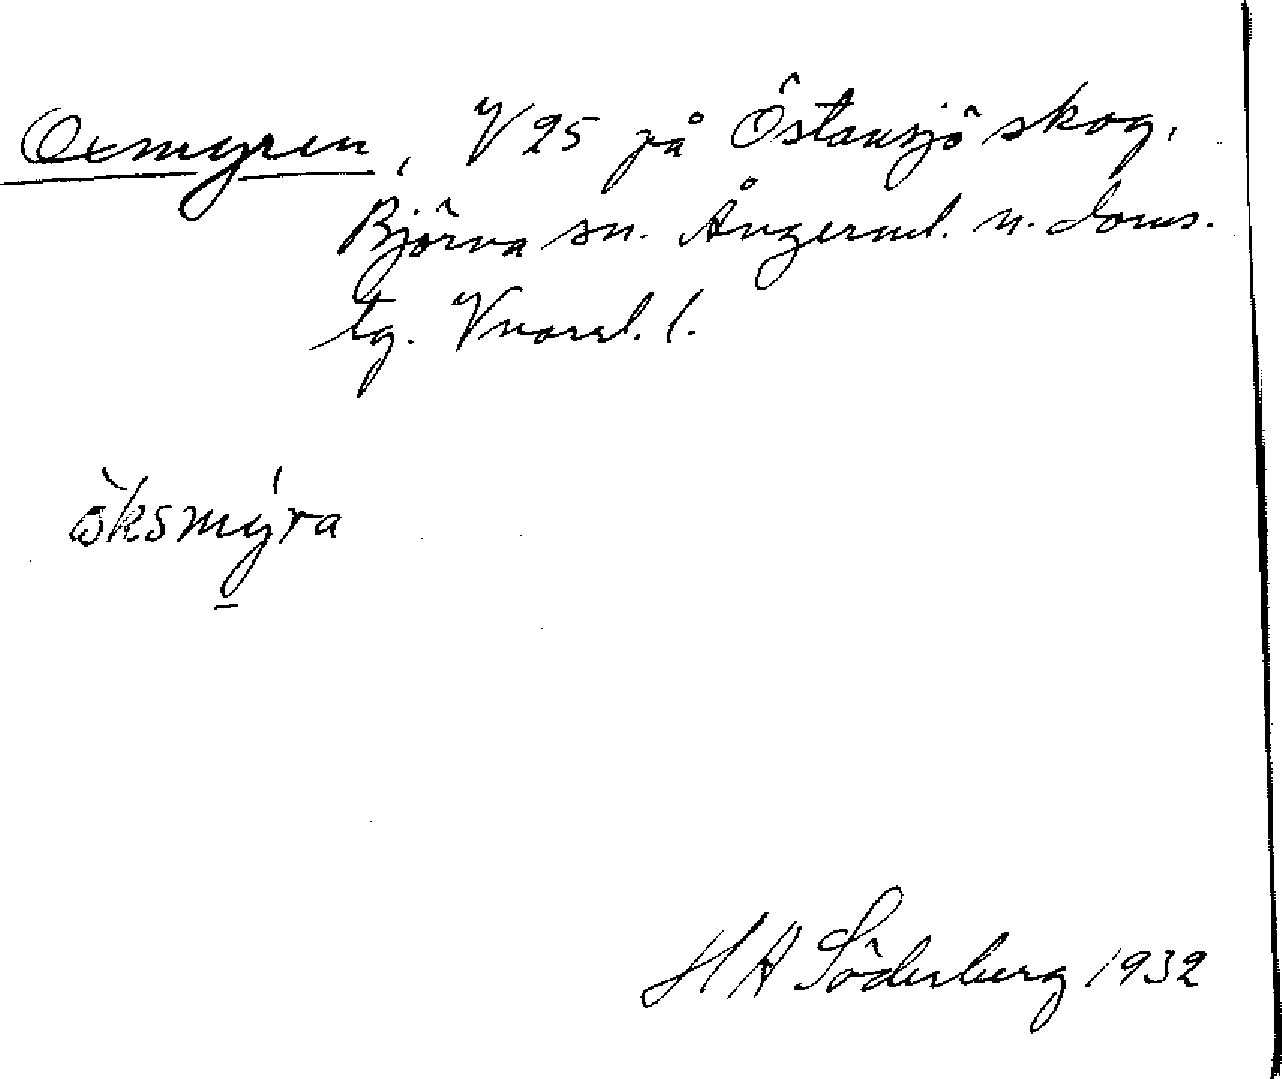 Oxmyren, V 25 på Östansjö skog,
Björna sn. Ångerml. n. doms.
tg. Vnorrl. l.
öksmýra
H A Söderberg 1932